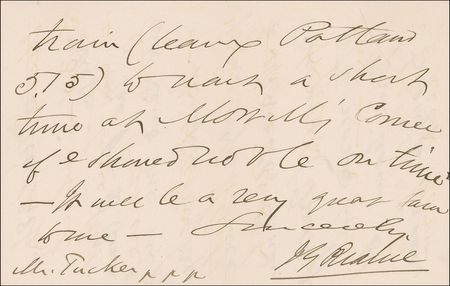 train (leaving Portland
5.15) to wait a short
time at Morrill's Corner
if I should not be on time
— It will be a very great favor
to me — Sincerely
Mr. Tucker JGBlaine